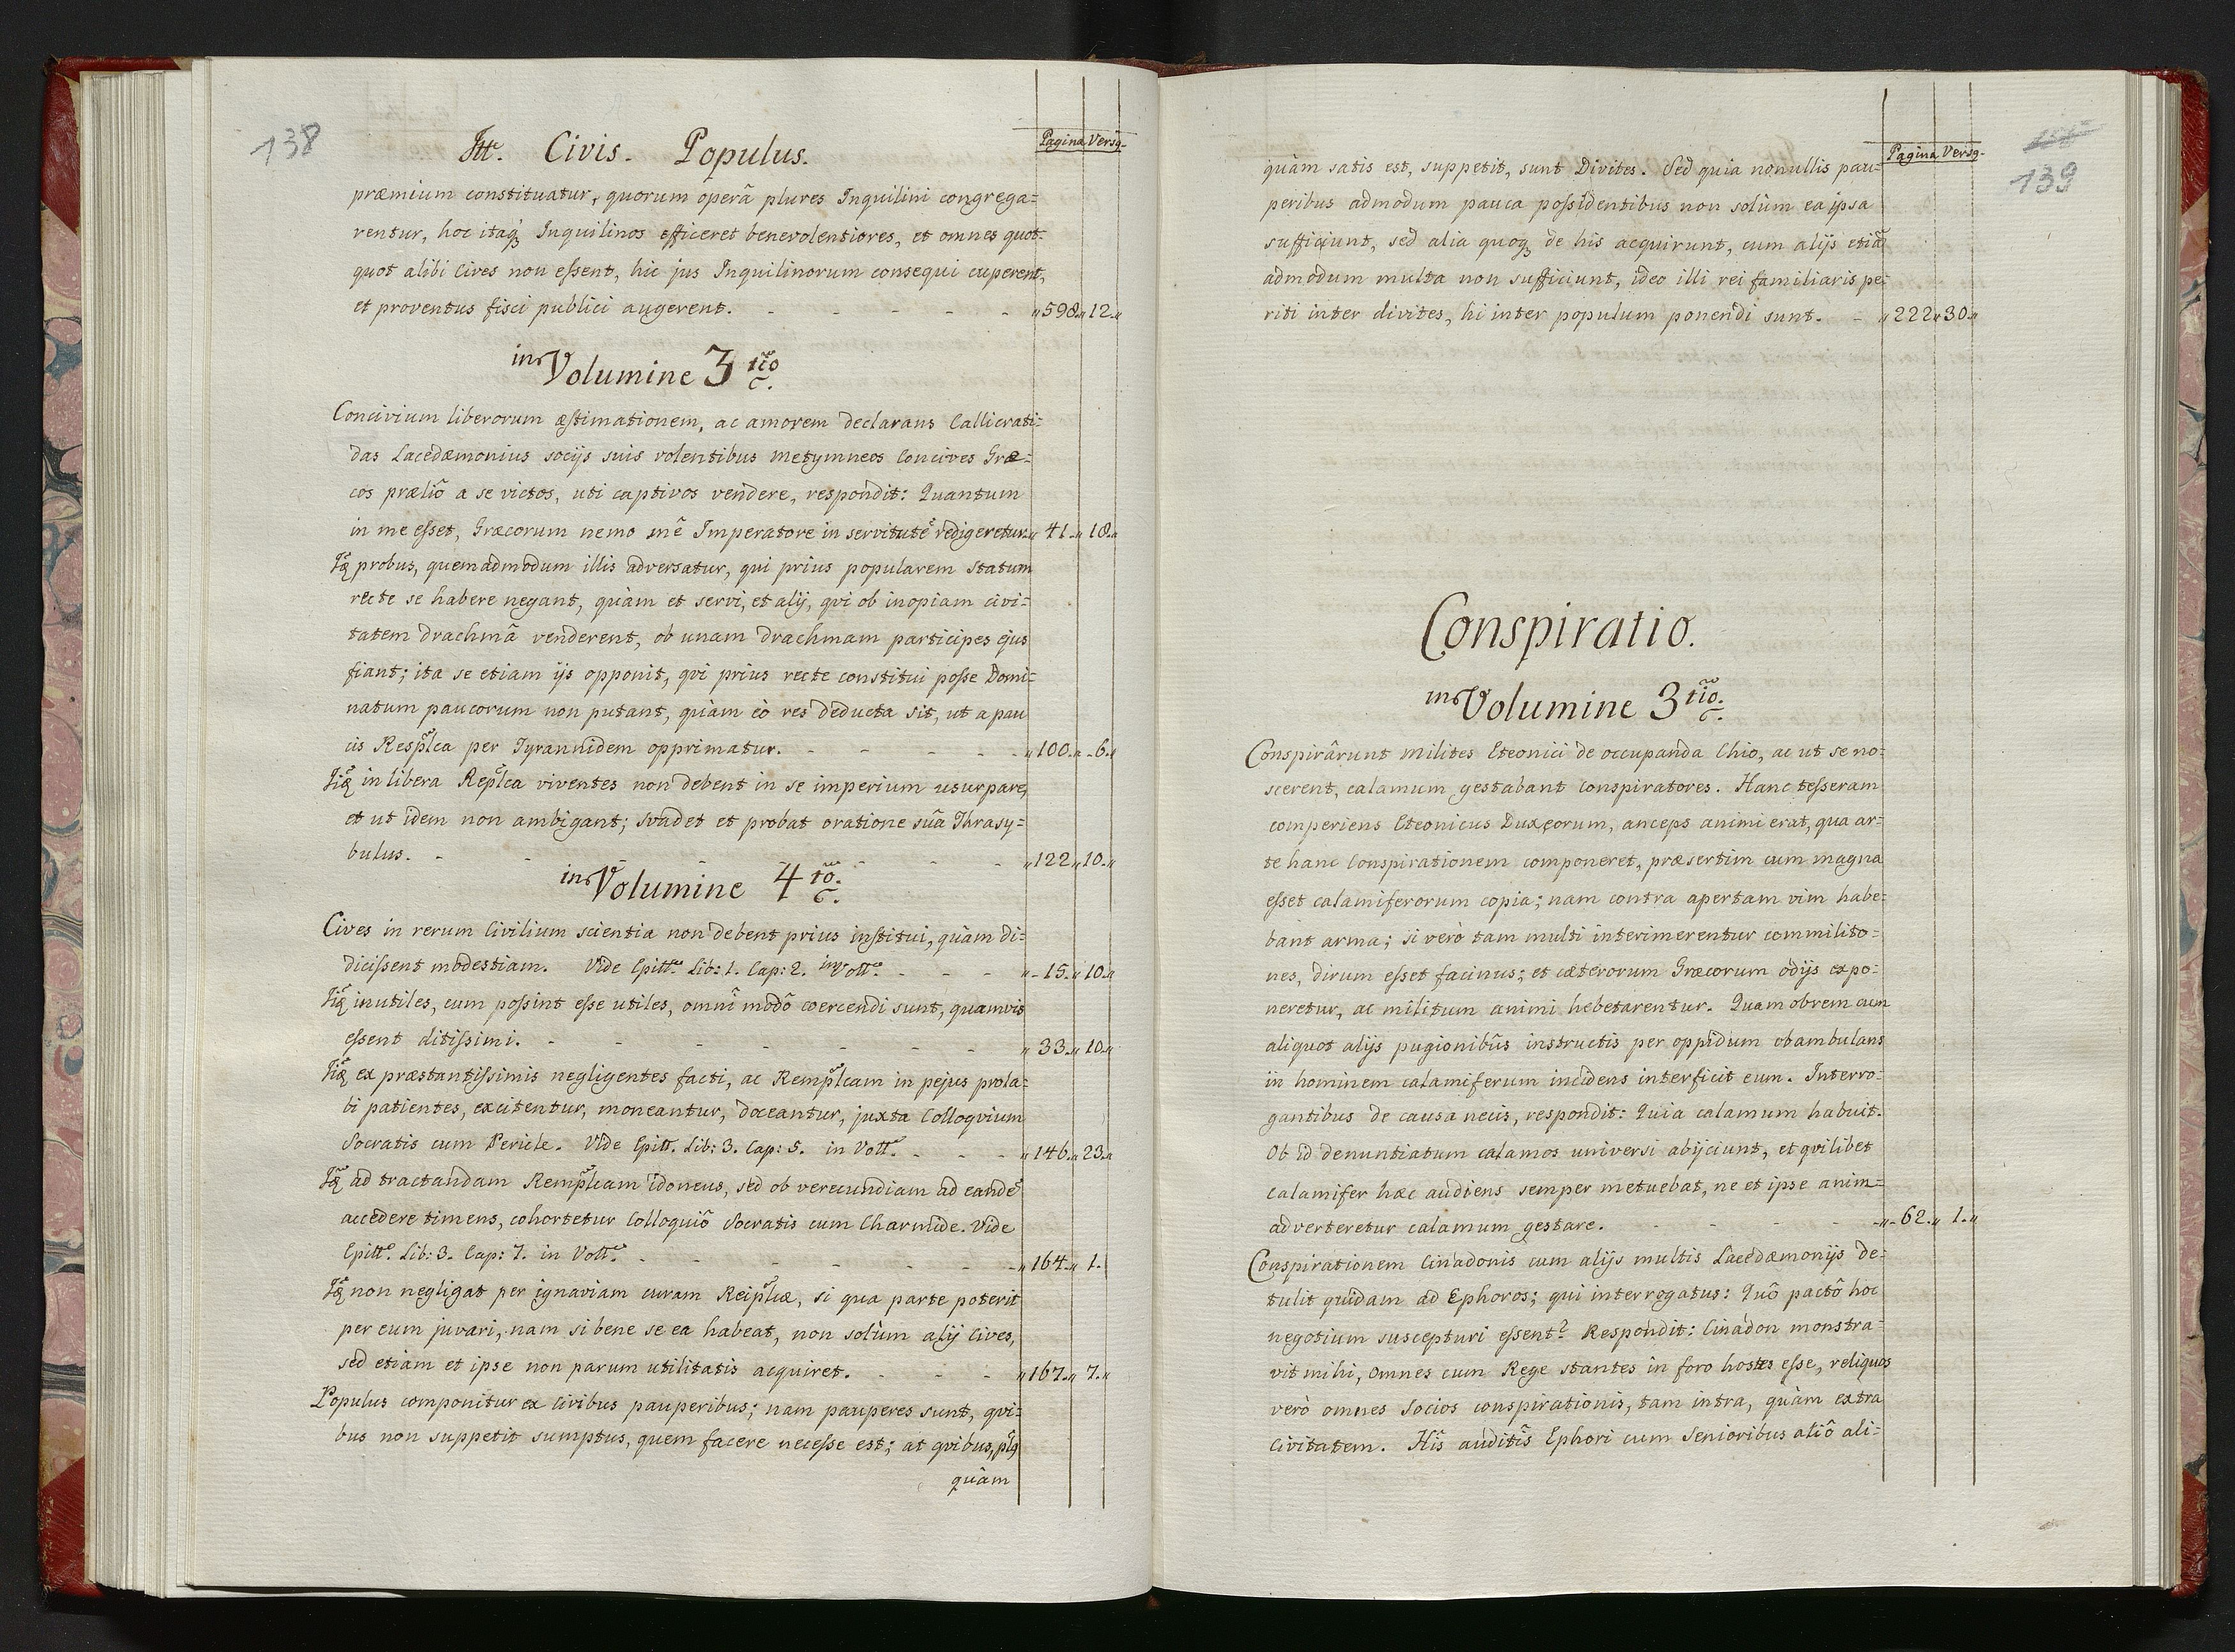 138
Itt. Civis. Populus.
Pagina Versq.
præmium constituatur, quorum operâ plures Inquilini congrega=
rentur, hoc itaq3 Inquilinos efficeret benevolentiores, et omnes quot=
quot alibi Cives non essent, hic jus Inquilinorum consequi cuperent,
et proventus fisci publici augerent. - - - - - „598„12„
in Volumine 3tio.
Concivium liberorum æstimationem, ac amorem declarans Callicrati=
das Lacedæmonius socijs suis volentibus Metymneos Concives Græ=
cos prœliô a se victos, uti captivos vendere, respondit: Quantum
in me esset, Græcorum nemo mê Imperatore in servitutẽ redigeretur. „41„18„
probus, quemadmodum illis adversatur, qui prius popularem statum
recte se habere negant, quàm et servi, et alij, qvi ob inopiam civi=
tatem drachmâ venderent, ob unam drachmam participes ejus
fiant; ita se etiam ijs opponit, qvi prius recte constitui posse Domi=
natum paucorum non putant, quàm eò res deducta sit, ut a pau
cis Resplca per Tyrannidem opprimatur. - - - - „100„6„
in libera Replca viventes non debent in se imperium usurpare,
et ut idem non ambigant; svadet et probat oratione suâ Thrasy=
bulus. - - - - - - - „122„10„
in Volumine 4to.
Cives in rerum Civilium scientia non debent prius institui, quàm di=
dicissent modestiam. Vide Epitt. Lib: 1. Cap: 2. in Vott. - - - „15„10„
inutiles, cum possint esse utiles, omnî modô coercendi sunt, quamvis
essent ditissimi. - - - - - - - „33„10„
ex præstantissimis negligentes facti, ac Remplcam in pejus prola=
bi patientes, excitentur, moneantur, doceantur, juxta Colloqvium
Socratis cum Pericle. Vide Epitt. Lib: 3. Cap: 5. in Vott. - - - „146„23„
ad tractandam Remplcam idoneus, sed ob verecundiam ad eandẽ
accedere timens, cohortetur Colloquiô Socratis cum Charmide. Vide
Epitt. Lib: 3. Cap: 7. in Vott. - - - - - - „164„1.
non negligat per ignaviam curam Reiplcæ, si qua parte poterit
per eum juvari, nam si bene se ea habeat, non solùm alij Cives,
sed etiam et ipse non parum utilitatis acquiret. - - - „167„7„
Populus componitur ex Civibus pauperibus; nam pauperes sunt, qvi=
bus non suppetit sumptus, quem facere necesse est; at qvibus, plq
quàm
139
Pagina Versq.
quàm satis est, suppetit, sunt Divites. Sed quia nonullis pau=
peribus admodum pauca possidentibus non solùm ea ipsa
sufficiunt, sed alia quoq3 de his acquirunt, cum alijs etiã
admodum multa non sufficiunt, ideo illi rei familiaris pe=
riti inter divites, hi inter populum ponendi sunt. - „222„30„
Conspiratio.
in Volumine 3tio.
Conspirârunt Milites Eteonici de occupanda Chio, ac ut se no=
scerent, calamum gestabant Conspiratores. Hanc tesseram
comperiens Eteonicus Dux eorum, anceps animi erat, qua ar=
te hanc Conspirationem componeret, præsertim cum magna
esset calamiferorum copia; nam contra apertam vim habe=
bant arma; si verò tam multi interimerentur commilito=
nes, dirum esset facinus; et cæterorum Græcorum odijs expo=
neretur, ac militum animi hebetarentur. Quamobrem cum
aliquot alijs pugionibûs instructis per oppidum obambulans
in hominem calamiferum incidens interficit eum. Interro=
gantibus de causa necis, respondit: Quia calamum habuit.
Ob id denuntiatum calamos universi abijciunt, et qvilibet
Calamifer hæc audiens semper metuebat, ne et ipse anim=
adverteretur calamum gestare. - - - - - „62„1„
Conspirationem Cinadonis cum alijs multis Lacedæmonijs de=
tulit quidam ad Ephoros; qui interrogatus: Quô pactô hoc
negotium suscepturi essent? Respondit: Cinadon monstra=
vit mihi, Omnes cum Rege stantes in foro hostes esse, reliquos
verò omnes Socios conspirationis, tam intra, quàm extra
Civitatem. Hîs audîtis Ephori cum Senioribus aliô ali=